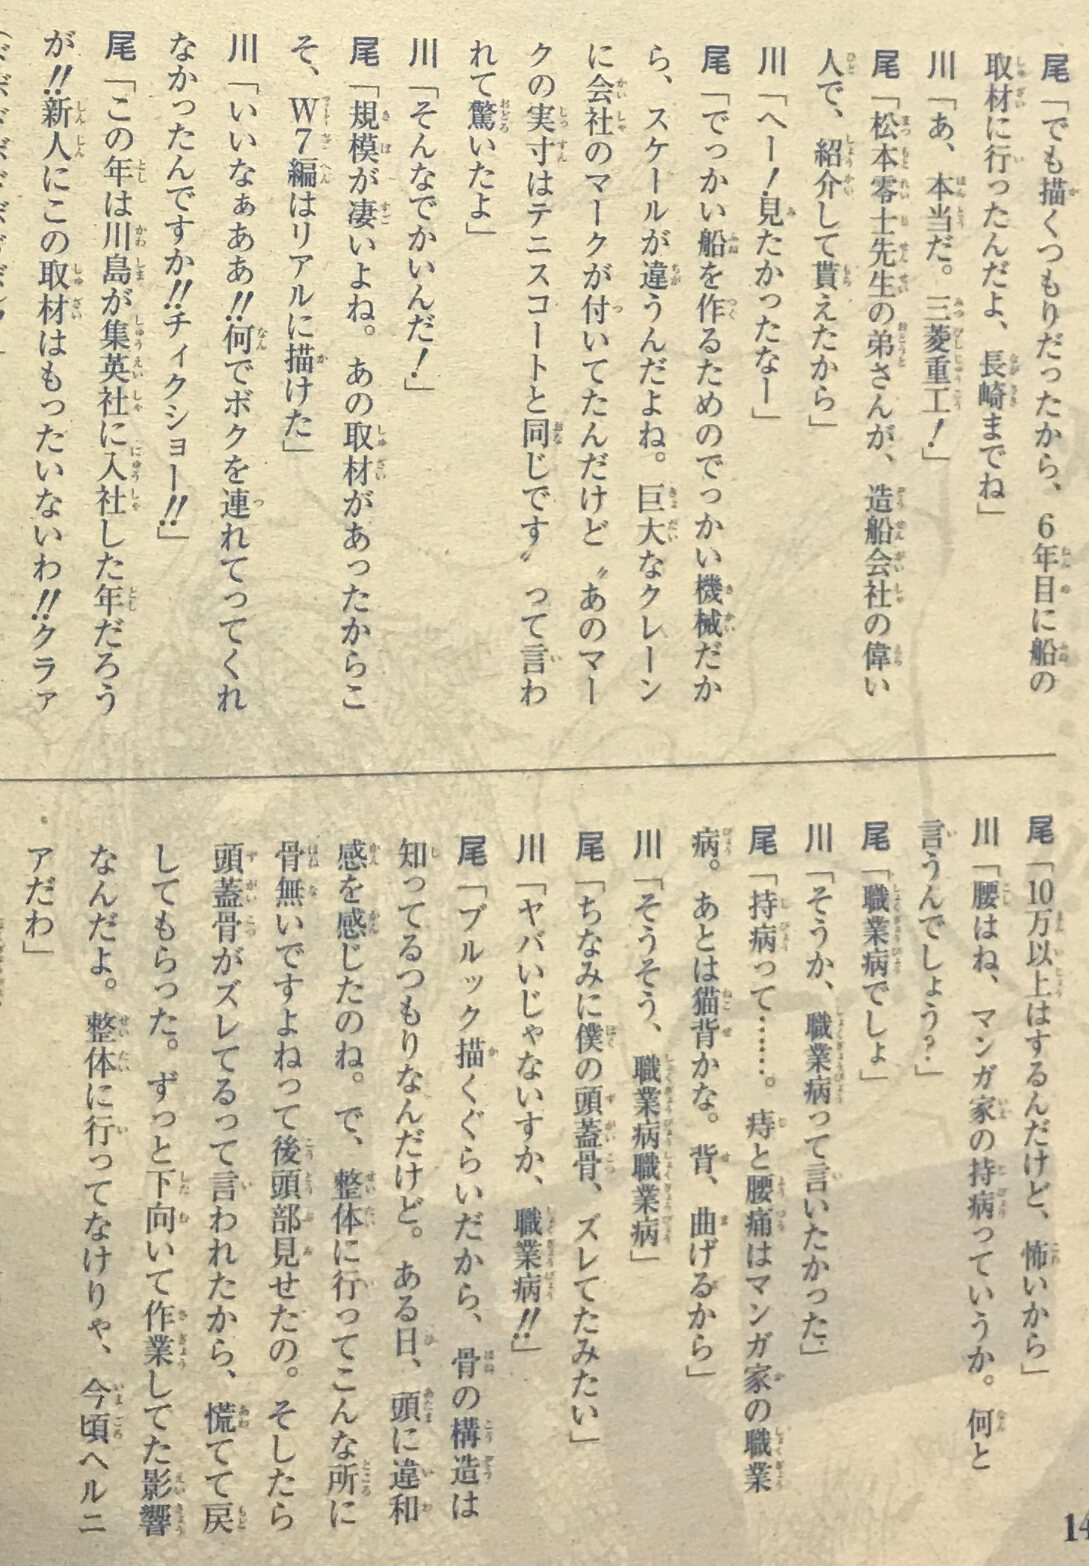 尾「でも描くつもりだったから、6年目に船の
取材に行ったんだよ、長崎までね」
川「あ、本当だ。三菱重工！」
尾「松本零士先生の弟さんが、造船会社の偉い
人で、紹介して貰えたから」
川「へー！見たかったなー」
尾「でっかい船を作るためのでっかい機械だか
ら、スケールが違うんだよね。巨大なクレーン
に会社のマークが付いてたんだけど〝あのマー
クの実寸はテニスコートと同じです〟って言わ
れて驚いたよ」
川「そんなでかいんだ！」
尾「規模が凄いよね。あの取材があったからこ
そ、W7編はリアルに描けた」
川「いいなぁああ!!何でボクを連れてってくれ
なかったんですか!!チィクショー!!」
尾「この年は川島が集英社に入社した年だろう
が!!新人にこの取材はもったいないわ!!クラァ
尾「10万以上はするんだけど、怖いから」
川「腰はね、マンガ家の持病っていうか。何と
言うんでしょう？」
尾「職業病でしょ」
川「そうか、職業病って言いたかった」
尾「持病って……。痔と腰痛はマンガ家の職業
病。あとは猫背かな。背、曲げるから」
川「そうそう、職業病職業病」
尾「ちなみに僕の頭蓋骨、ズレてたみたい」
川「ヤバいじゃないすか、職業病!!」
尾「ブルック描くぐらいだから、骨の構造は
知ってるつもりなんだけど。ある日、頭に違和
感を感じたのね。で、整体に行ってこんな所に
骨無いですよねって後頭部見せたの。そしたら
頭蓋骨がズレてるって言われたから、慌てて戻
してもらった。ずっと下向いて作業してた影響
なんだよ。整体に行ってなけりゃ、今頃ヘルニ
アだわ」
14